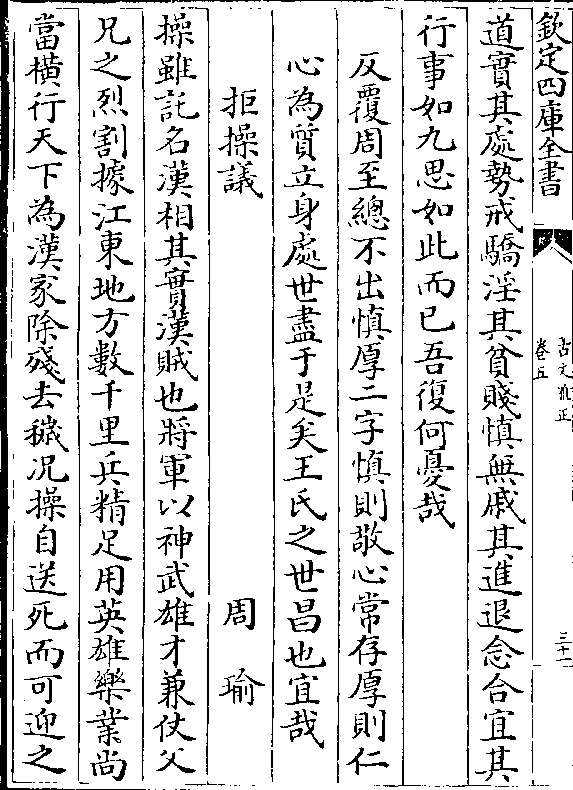 欽定四庫全書
古文雅正
卷五
三十一
道實其處勢戒驕淫其貧賤慎無戚其進退念合宜其
行事如九思如此而已吾復何憂哉
反覆周至總不出慎厚二字慎則敬心常存厚則仁
心為質立身處世盡于是矣王氏之世昌也宜哉
拒操議
周瑜
操雖託名漢相其實漢賊也將軍以神武雄才兼仗父
兄之烈割據江東地方數千里兵精足用英雄樂業尚
當橫行天下為漢家除殘去穢况操自送死而可迎之